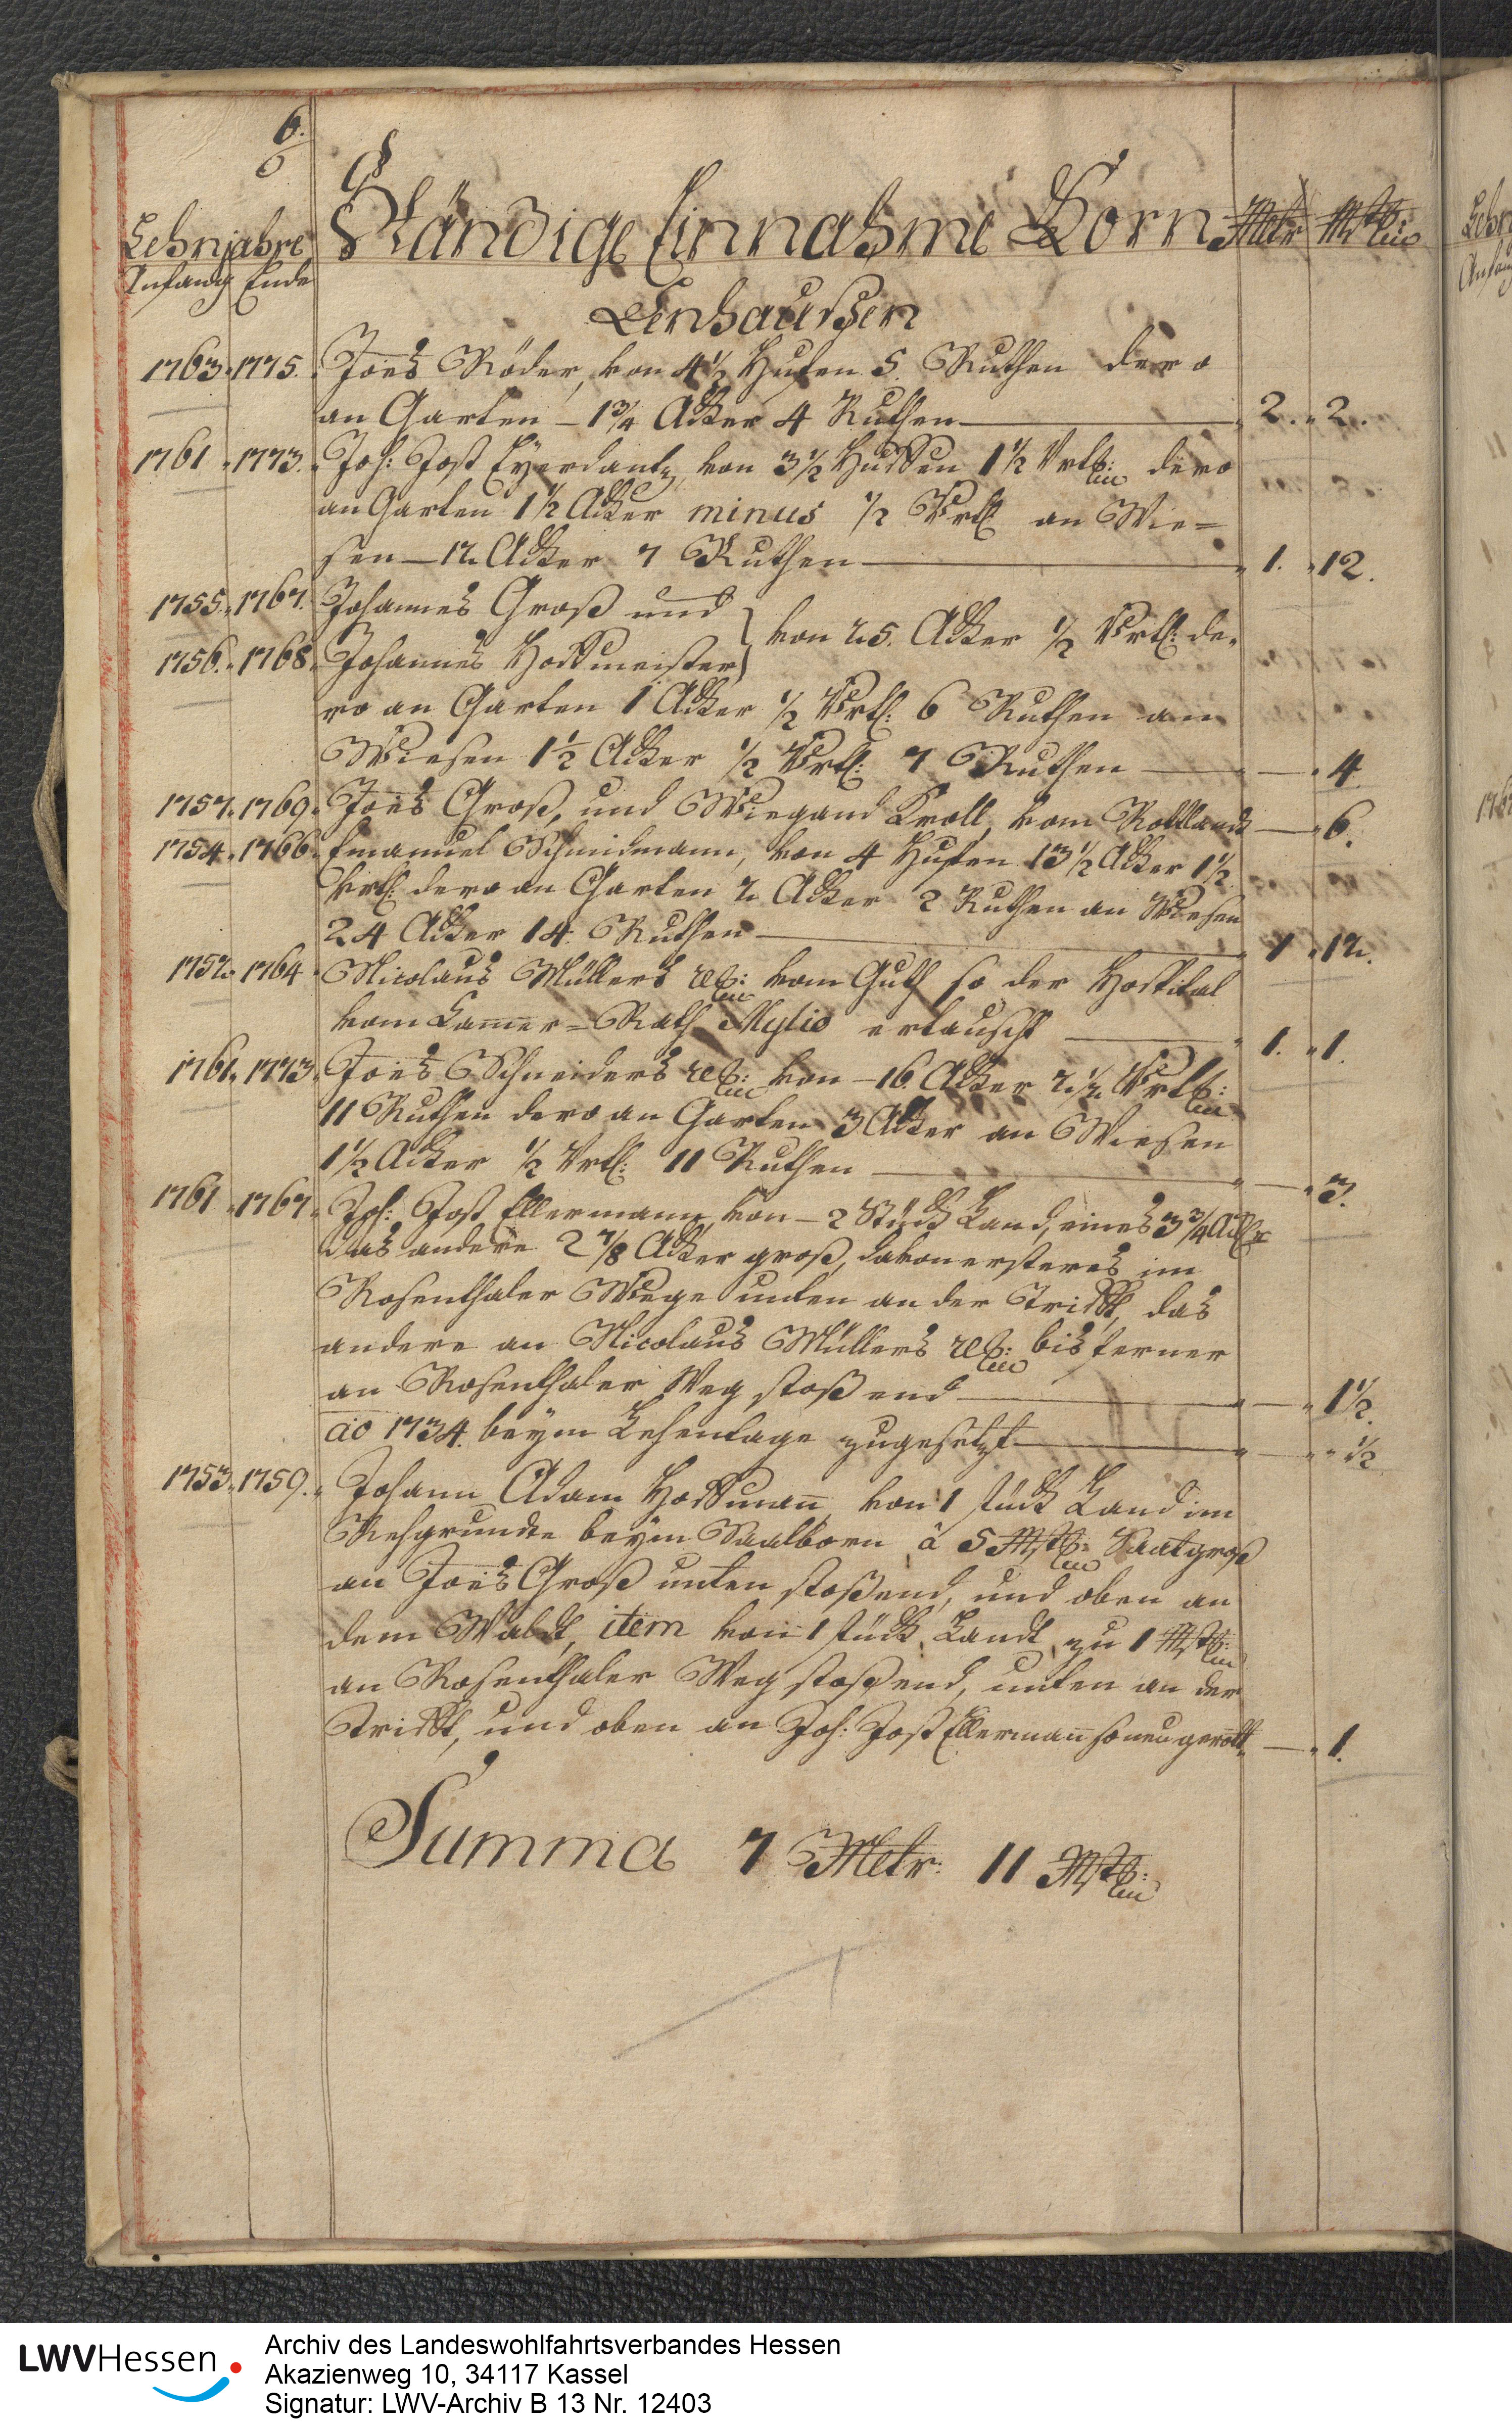 6.
Lehnjahre Ständige Einnahme Korn Mttr Mßt:
Anfang Ende
Lenhaußen
1763. 1775. Joēs Röder, von 4½ Hufen 5. Ruthen dero
an Garten – 1¾ Acker 4 Ruthen — 2. 2.
1761. 1773. Joh: Jost Eyerdantz, von 3½ Huffen 1½ Vrtl: dero
an Garten 1½ Acker minus ½ Vrtl an Wie=
sen – 12 Acker 7 Ruthen — 1. 12.
1755. 1767. Johannes Groß und
von 25. Acker ½ Vrtl: de-
1756. 1768. Johannes Hoffmeister
ro an Garten 1 Acker ½ Vrtl: 6 Ruthen an
Wiesen 1½ Acker ½ Vrtl: 7 Ruthen — 4.
1757. 1769. Joēs Groß, und Wiegand Kroll, vom Rottlandt — 6.
1754. 1766. Emanuel Schmidmann, von 4 Hufen 13½ Acker 1½
Vrtl: dero an Garten 2 Acker 2 Ruthen an Wiesen
24 Acker 14. Ruthen — 1 12.
1752. 1764 Nicolaus Müllers rel: vom Guth so der Hospital
vom Cammer=Rath Mylio ertauscht — 1. 1.
1761. 1773. Joēs Schneiders rel: von – 16. Acker 2½ Vrtl:
11 Ruthen dero an Garten 3 Acker an Wiesen
1½ Acker ½ Vrtl: 11 Ruthen — 3.
1761. 1767. Joh: Jost Ellermann, von – 2 Stück Land, eines 3¾ Acker
das andere 2⅞ Acker groß, davon ersteres im
Rosenthaler Wege unten an der Trifft, das
andere an Nicolaus Müllers rel: bis ferner
an Rosenthaler Weg stoßend — 1½.
ao 1734. beym Lehentage zugesetzt — ½
1753. 1759. Johann Adam Hoffmañ von 1 stück Land im
Rehgrunde beym Saalborn â 5 Mßt: Saat groß
an Joēs Groß unten stoßend, und oben an
dem Waldt, item von 1 stück Landt zu 1 Mßt:
an Rosenthaler Weg stoßend, unten an der
Trifft, und oben an Joh: Jost Ellermañ so neu gerott — 1.
Summa 7 Mttr: 11 Mßt:
LWVHessen
Archiv des Landeswohlfahrtsverbandes Hessen
Akazienweg 10, 34117 Kassel
Signatur: LWV-Archiv B 13 Nr. 12403